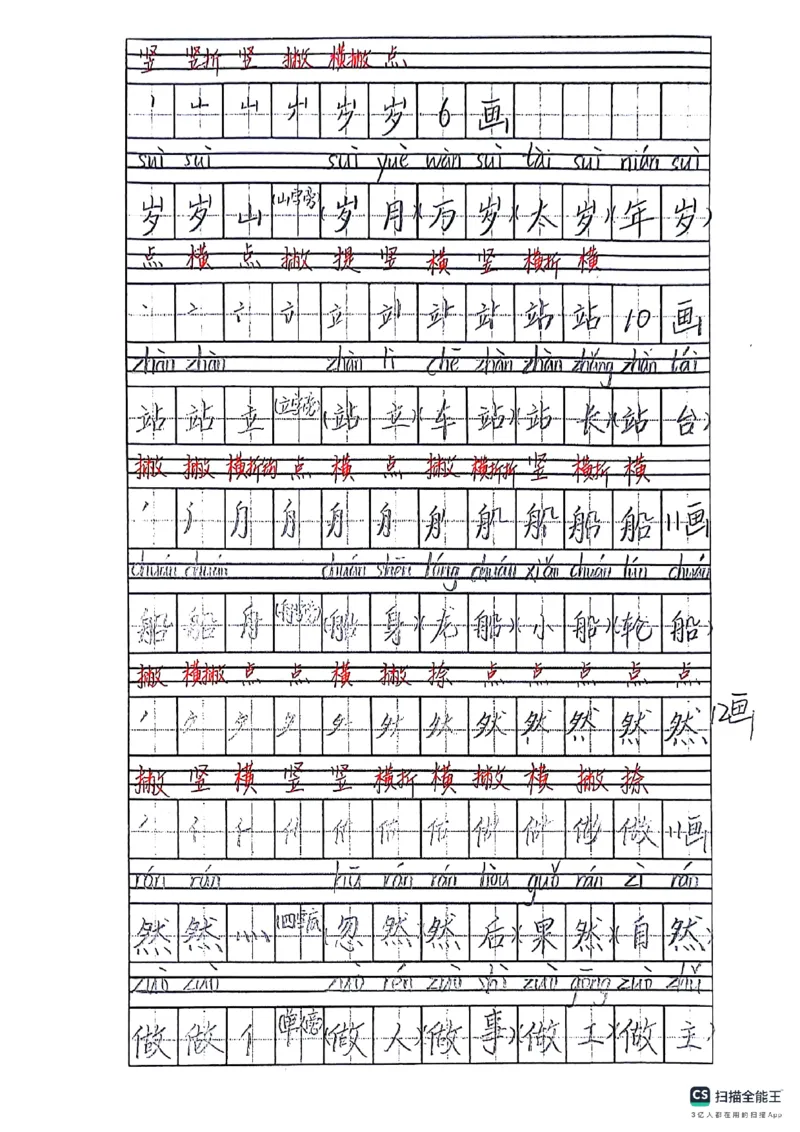 竖 竖折 竖 撇 横撇 点
丶 山 山 岁 岁 6 画
suì suì suì yuè wàn suì tài suì nián suì
岁 岁 山 (山字旁) (岁 月) (万 岁) (太 岁) (年 岁)
点 横 点 撇 提 竖 横 竖 横折 横
立 站 站 站 10 画
zhàn zhàn zhàn lì chē zhàn zhàn zhǎng zhàn tái
站 站 立 (立字旁) (站 立) (车 站) (站 长) (站 台)
撇 撇 横折钩 点 横 点 撇 横折折 竖 横折 横
舟 舟 船 船 船 船 11画
chuán chuán chuán shēn lóng chuán xiǎo chuán lún chuán
船 船 舟 (舟字旁) (船 身) (龙 船) (小 船) (轮 船)
撇 横撇 点 点 横 撇 捺 点 点 点 点 点
然 然 然 然 12画
撇 竖 横 竖 竖 横折 横 撇 横 撇 捺
估 估 做 做 11画
rán rán hū rán rán hòu guǒ rán zì rán
然 然 灬 (忽 然) (然 后) (果 然) (自 然)
zuò zuò zuò rén zuò shì zuò gōng zuò zhǔ
做 做 亻 (单人旁) (做 人) (做 事) (做 工) (做 主)
CS 扫描全能王
3亿人都在用的扫描App